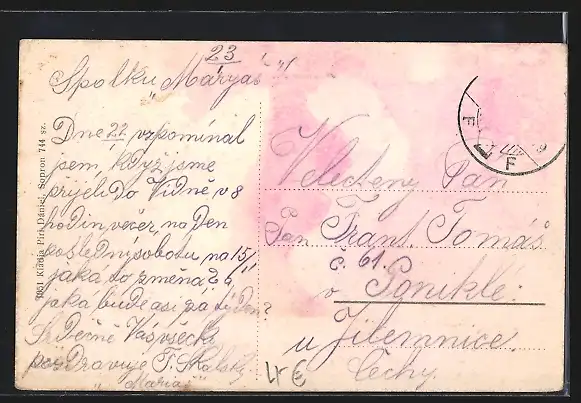 23
Spolku "Máryáš"
Dne 22 vzpomínal
jsem když jsme
přijeli do Vídně v 8
hodin večer, na den
poslední sobotu na 15/
jaká to změna a
jaká bude asi za týden?
Srdečně Vás všecky
pozdravuje F. Skalský
"Mariáš"
Kiadja Piri Dániel, Sopron 744 sz.
Velectěný Pan
Pan Frant. Tomáš
č. 61
v Poniklé
u Jilemnice
Čechy
4 €
F
F